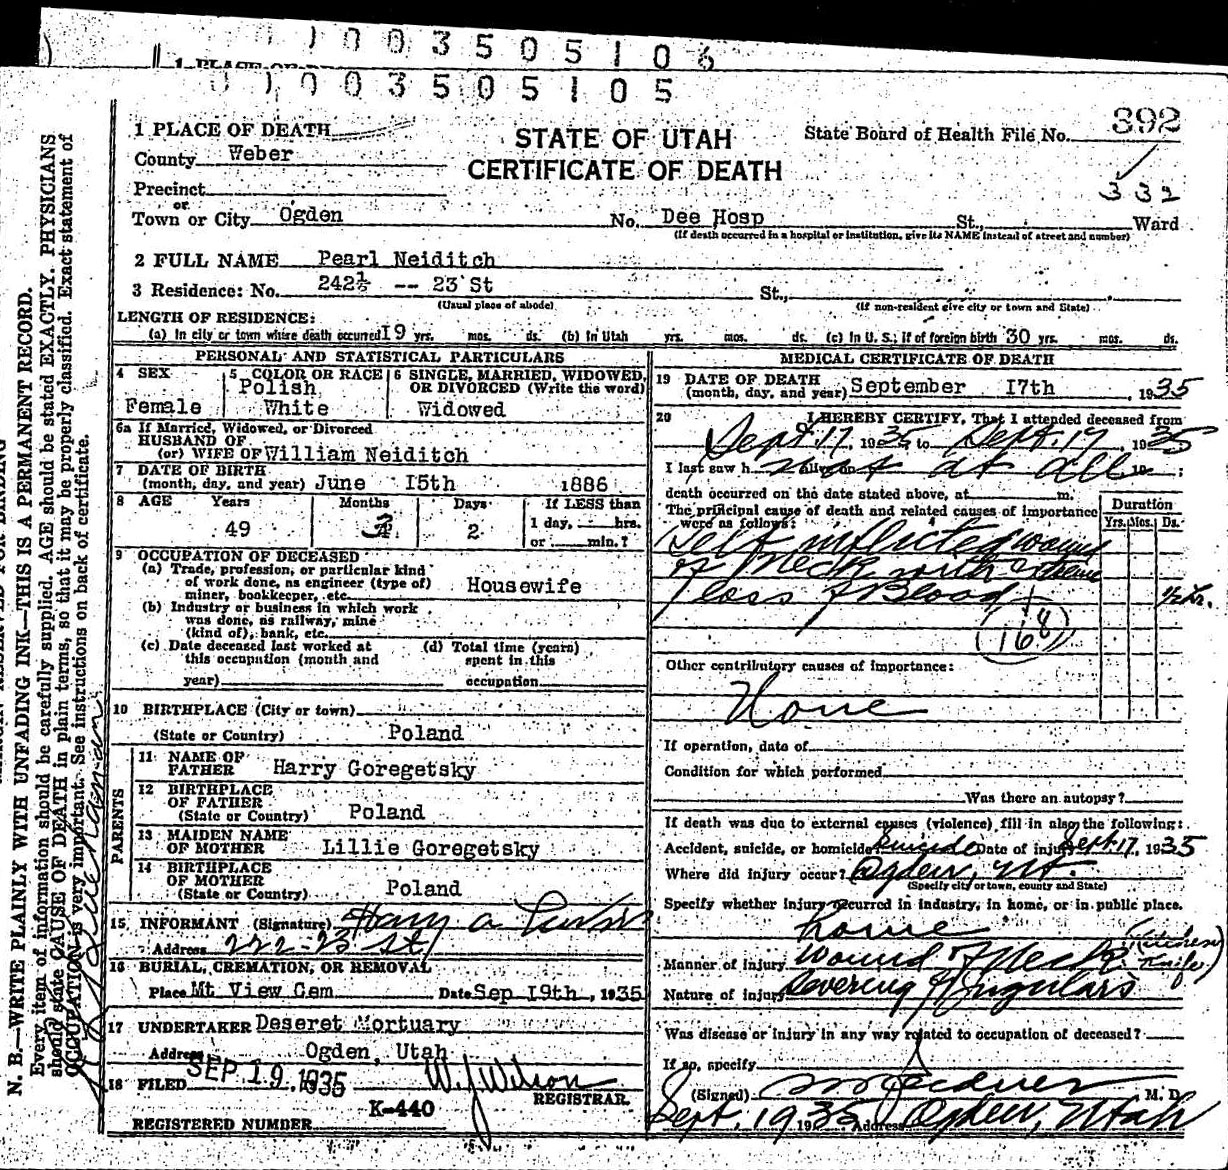 0 0 3 5 0 5 1 0 6
1 PLACE OF DE
0 0 3 5 0 5 1 0 5
1 PLACE OF DEATH
STATE OF UTAH
CERTIFICATE OF DEATH
State Board of Health File No. 392
332
County Weber
Precinct
or
Town or City Ogden No. Dee Hosp St., Ward
(If death occurred in a hospital or institution, give its NAME instead of street and number)
2 FULL NAME Pearl Neiditch
3 Residence: No. 242½ -- 23 St St.,
(Usual place of abode) (If non-resident give city or town and State)
LENGTH OF RESIDENCE:
(a) In city or town where death occurred 19 yrs. mos. ds. (b) In Utah yrs. mos. ds. (c) In U. S., if of foreign birth 30 yrs. mos. ds.
PERSONAL AND STATISTICAL PARTICULARS
4 SEX Female
5 COLOR OR RACE Polish White
6 SINGLE, MARRIED, WIDOWED, OR DIVORCED (Write the word) Widowed
6a If Married, Widowed, or Divorced
HUSBAND OF
(or) WIFE OF William Neiditch
7 DATE OF BIRTH
(month, day, and year) June 15th 1886
8 AGE Years 49 Months 3 Days 2 If LESS than
1 day, hrs.
or min.?
9 OCCUPATION OF DECEASED
(a) Trade, profession, or particular kind
of work done, as engineer (type of)
miner, bookkeeper, etc. Housewife
(b) Industry or business in which work
was done, as railway, mine
(kind of), bank, etc.
(c) Date deceased last worked at
this occupation (month and
year)
(d) Total time (years)
spent in this
occupation
10 BIRTHPLACE (City or town)
(State or Country) Poland
PARENTS
11 NAME OF
FATHER Harry Goregetsky
12 BIRTHPLACE
OF FATHER
(State or Country) Poland
13 MAIDEN NAME
OF MOTHER Lillie Goregetsky
14 BIRTHPLACE
OF MOTHER
(State or Country) Poland
15 INFORMANT (Signature) Harry a
Address 222-23 St
16 BURIAL, CREMATION, OR REMOVAL
Place Mt View Cem Date Sep 19th, 1935
17 UNDERTAKER Deseret Mortuary
Address Ogden, Utah
18 FILED SEP 19 1935 W. J. Wilson
REGISTRAR.
K-440
REGISTERED NUMBER
MEDICAL CERTIFICATE OF DEATH
19 DATE OF DEATH
(month, day, and year) September 17th, 1935
20 I HEREBY CERTIFY, That I attended deceased from
Sept. 17 1935 to Sept. 17 1935
I last saw h not alive on at all 19 ;
death occurred on the date stated above, at m.
The principal cause of death and related causes of importance
were as follows:
Duration
Yrs. Mos. Ds.
Self inflicted wound
of Neck with extreme
loss of Blood ½ hr.
168
Other contributory causes of importance:
None
If operation, date of
Condition for which performed
Was there an autopsy?
If death was due to external causes (violence) fill in also the following:
Accident, suicide, or homicide Suicide Date of injury Sept. 17, 1935
Where did injury occur? Ogden, Ut.
(Specify city or town, county and State)
Specify whether injury occurred in industry, in home, or in public place.
home
Manner of injury Wound of Neck (Kitchen Knife)
Nature of injury Severing of Jugulars
Was disease or injury in any way related to occupation of deceased?
If so, specify
(Signed) M. D.
Sept. 1935 19 Address Ogden, Utah
MARGIN RESERVED FOR BINDING
N. B.—WRITE PLAINLY WITH UNFADING INK—THIS IS A PERMANENT RECORD.
Every item of information should be carefully supplied. AGE should be stated EXACTLY. PHYSICIANS
should state CAUSE OF DEATH in plain terms, so that it may be properly classified. Exact statement of
OCCUPATION is very important. See instructions on back of certificate.